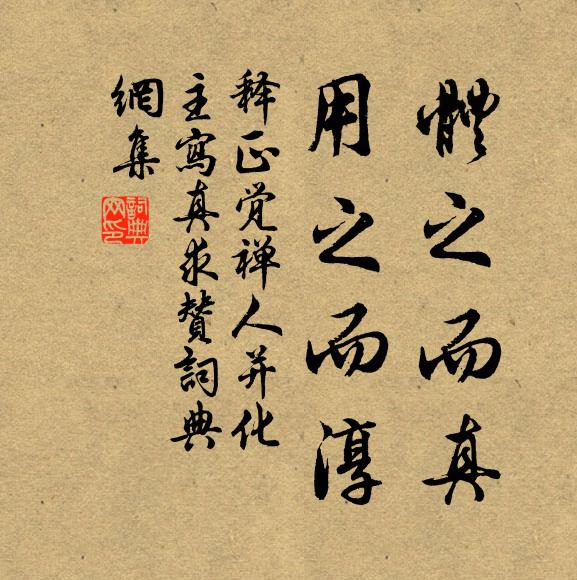 體之而真
用之而淳
释正觉禅人并化
主寫真求贊詞典
網集
詞典网印